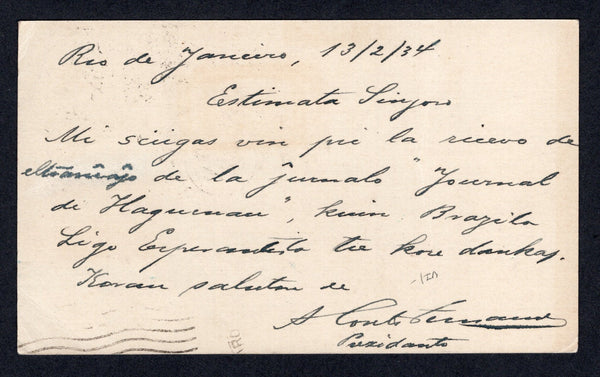 Rio de Janeiro, 13/2/34
Estimata Sinjoro
Mi sciigas vin pri la ricevo de
eltranĉaĵo de la ĵurnalo "Journal
de Haguenau", kiun Brazila
Ligo Esperantista tre kore dankas.
Koran saluton de
A Couto Fernandes
Prezidanto